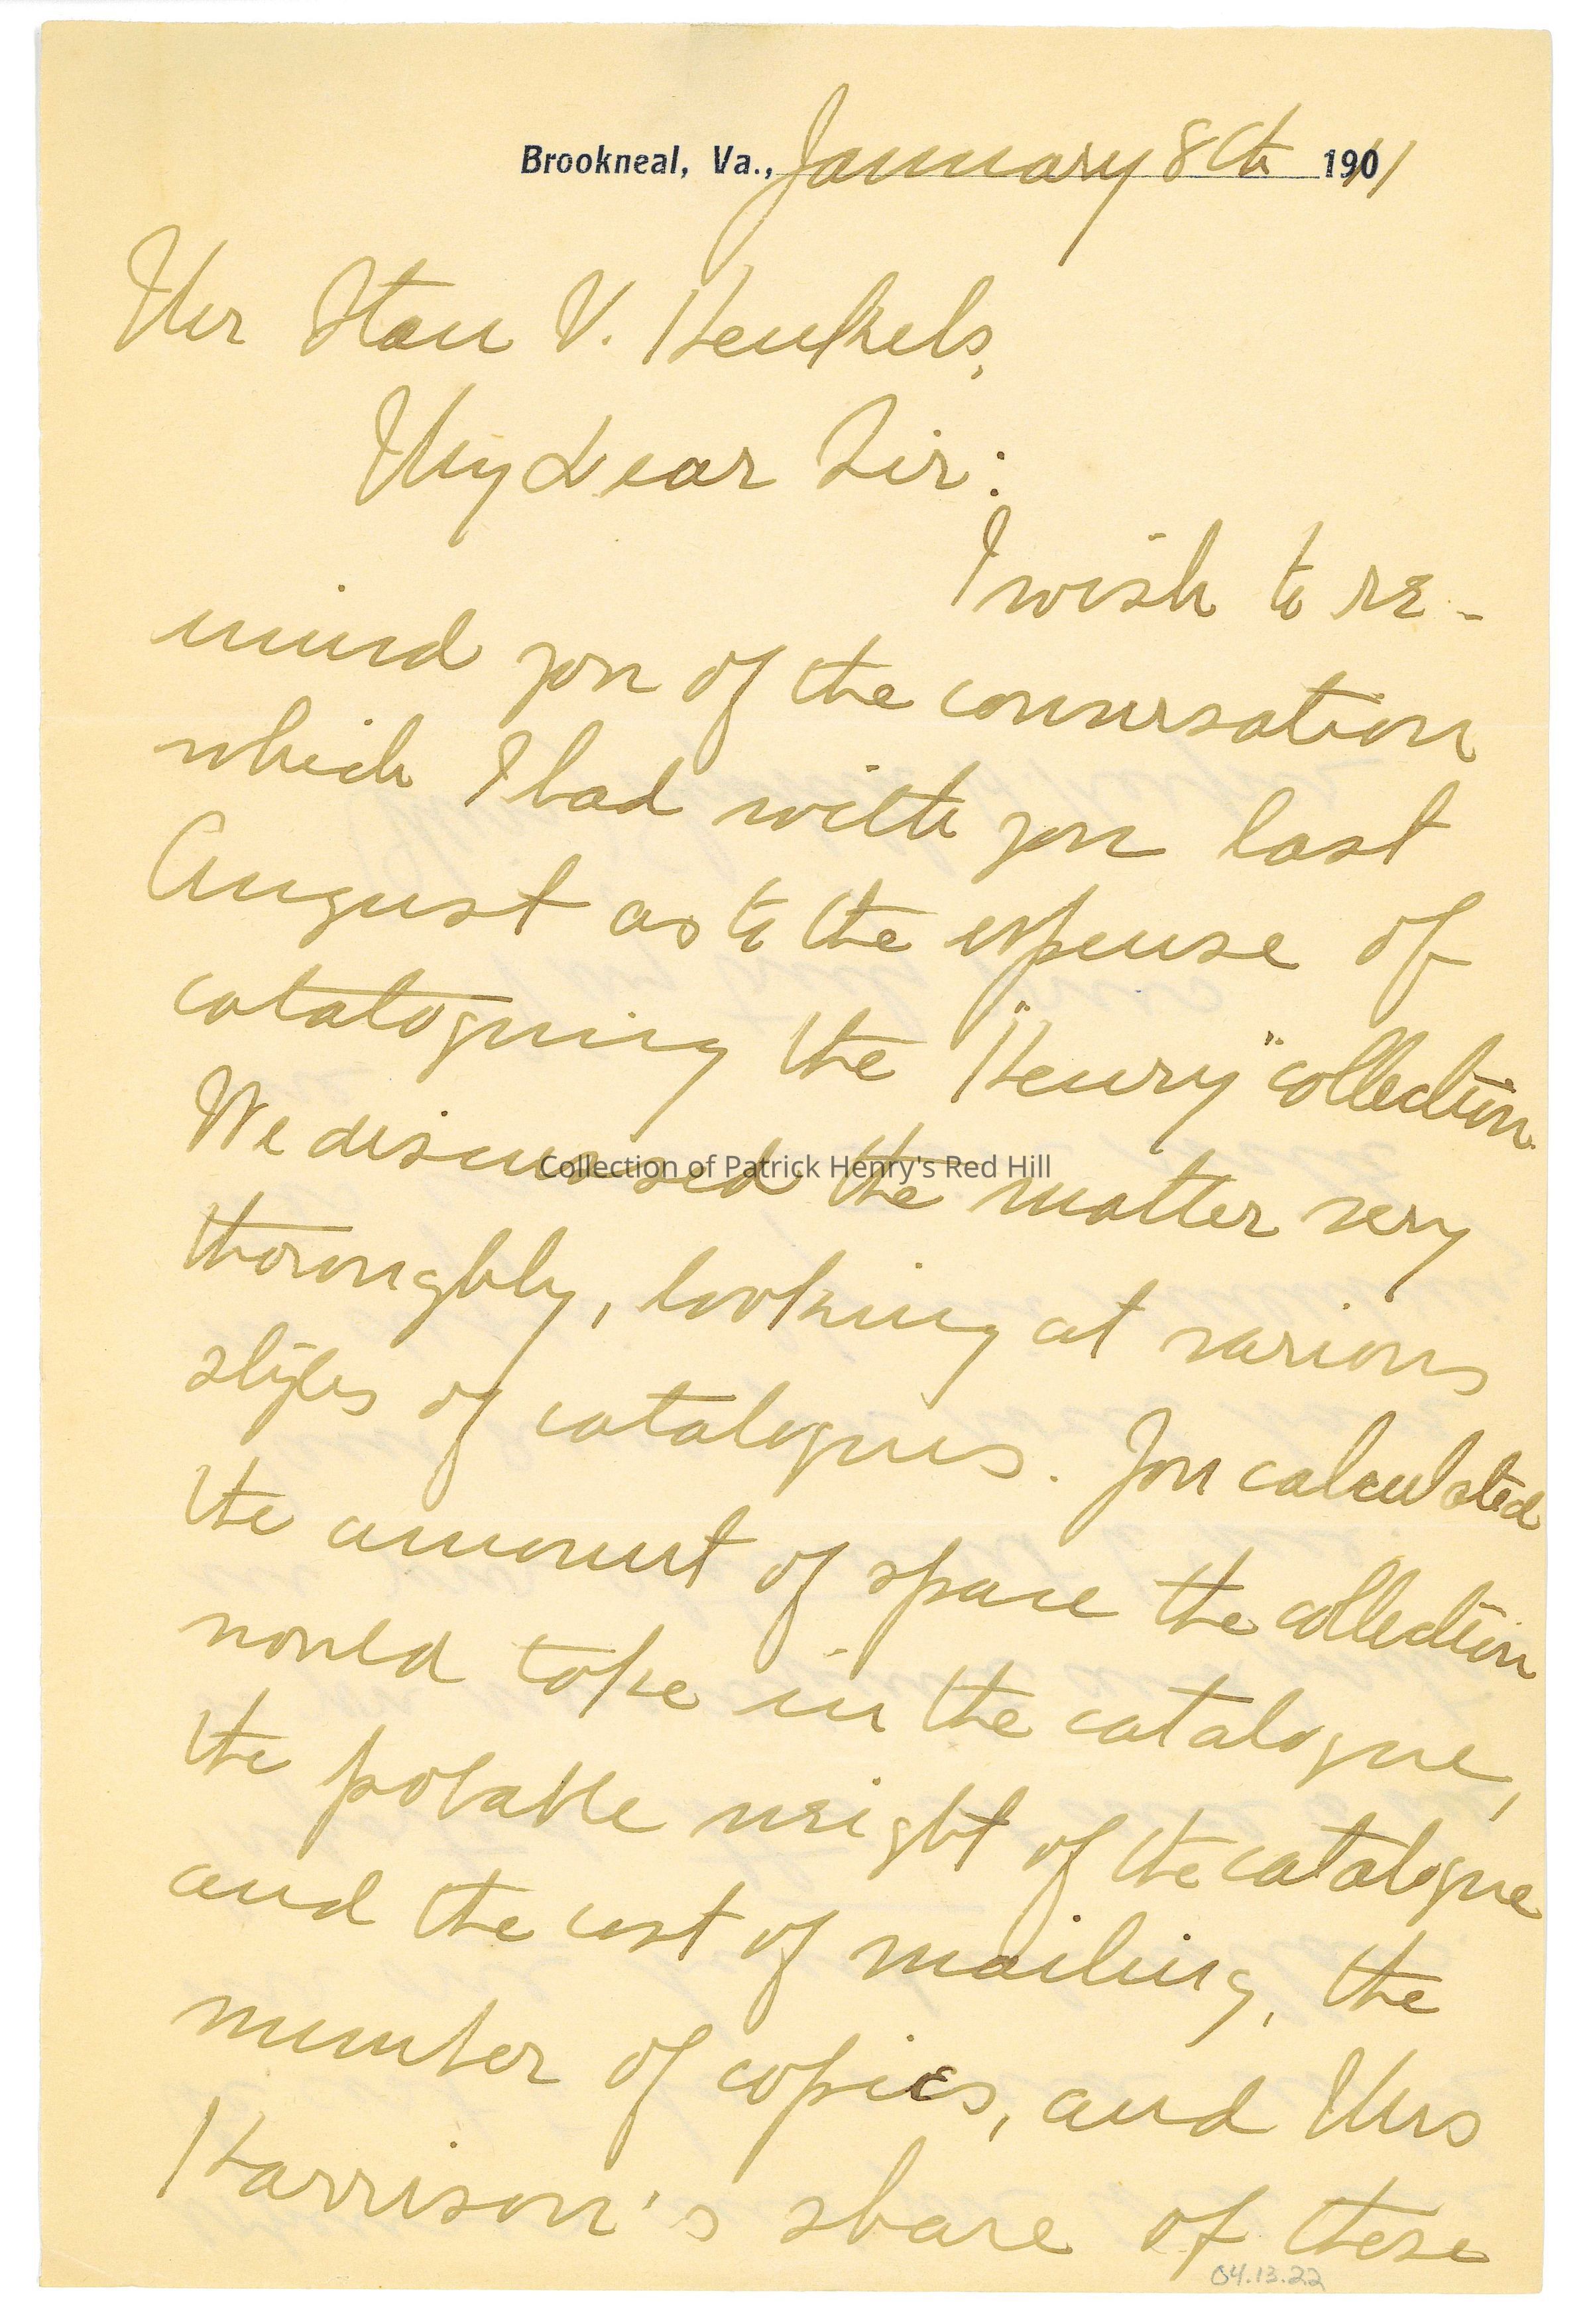 Brookneal, Va., January 8th 1911
Mr Stan V. Henkels,
My Dear Sir:
I wish to re-
mind you of the conversation
which I had with you last
August as to the expense of
cataloguing the "Henry" collection.
We discussed the matter very
Collection of Patrick Henry's Red Hill
thoroughly, looking at various
styles of catalogues. You calculated
the amount of space the collection
would take in the catalogue,
the probable weight of the catalogue
and the cost of mailing, the
number of copies, and Mrs
Harrison's share of these
04.13.22